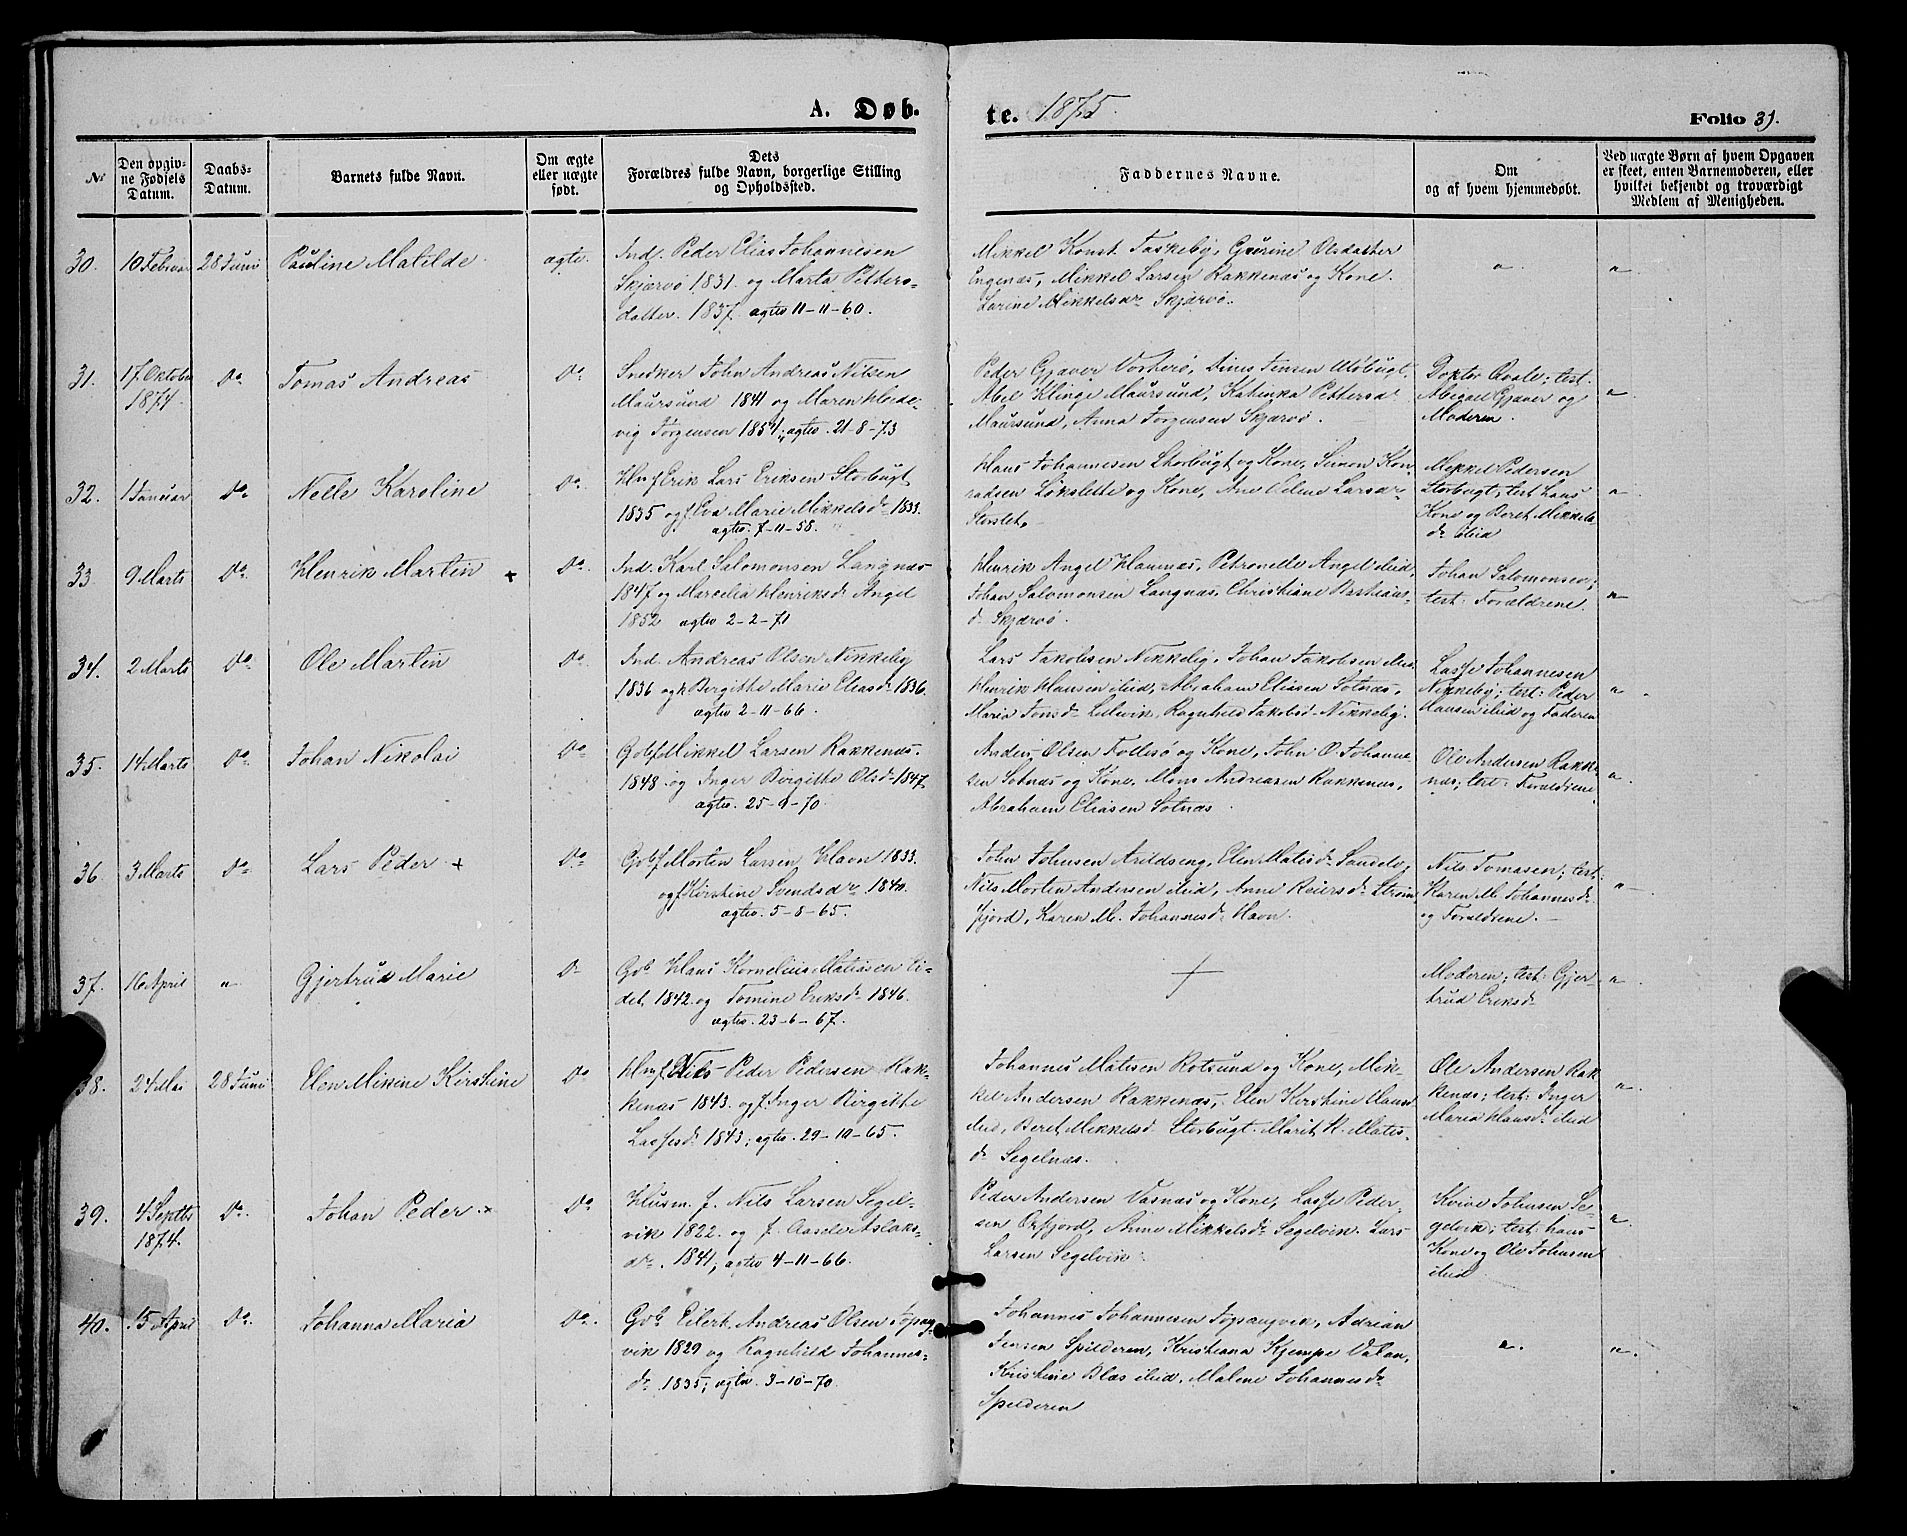 A. Døb-
te. 1875.
Folio 31.
№
Den opgiv-
ne Fødsels
Datum.
Daabs-
Datum.
Barnets fulde Navn.
Om ægte
eller uægte
født.
Dets
Forældres fulde Navn, borgerlige Stilling
og Opholdssted.
Faddernes Navne.
Om
og af hvem hjemmedøbt.
Ved uægte Børn af hvem Opgaven
er skeet, enten Barnemoderen, eller
hvilket bekjendt og troværdigt
Medlem af Menigheden.
30. 10 Februar 28 Juni Pauline Matilde ægte.
Ind. Peder Elias Johannesen
Skjærvø 1831. og Marta Petters-
datter. 1837. ægtev 11-11-60.
Mikkel Konst. Taskeby, Gurine Olsdatter
Engenæs, Mikkel Larsen Rakkenæs og Kone.
Larine Mikkelsdr Skjærvø.
"
"
31. 17 Oktober
1874. Do Tomas Andreas Do
Snedker John Andreas Nilsen
Maursund 1841 og Maren Hede-
vig Jørgensen 1851; ægtev. 21-8-73
Peder Gjæver Vorterø, Jensen
Abel Klinge Maursund, Katinka Pettersd
Maursund, Anna Jørgensen Skjærvø.
Doktor Qvale; test.
Abigael Gjæver og
Moderen
"
32. 1 Januar Do Nelle Karoline Do
Hmf Erik Lars Eriksen Storbugt
1835 og f Eva Marie Mikkelsd 1833.
ægtev. 7-11-58.
Hans Johannesen Storbugt og Kone, Simon Kon-
radsen Løkslette og Kone, Ane Elene Larsdr
Storslet.
Mikkel Pedersen
Storbugt; test hans
Kone og Beret Mikkels-
dr ibid
"
33 9 Marts Do Henrik Martin + Do
Ind. Karl Salomonsen Langnæs
1847 og Marselia Henriksd Angel
1852 ægtev 2-2-71
Henrik Angel Haunnæs, Petronelle Angel ibid,
Johan Salomonsen Langnæs, Christiane Bastians-
dr Skjærvø.
Johan Salomonsen;
test: Forældrene.
"
34. 2 Marts Do Ole Martin Do
Ind. Andreas Olsen Nikkeby
1836 og k Bergithe Marie Eliasd 1836.
ægtev 2-11-66.
Lars Jakobsen Nikkeby, Johan Jakobsen ibid
Henrik Hansen ibid, Abraham Eliasen Sotnæs,
Maria Jonsd Lilvik, Ragnhild Jakobsd Nikkeby.
Lasse Johannesen
Nikkeby; test: Peder
Hansen ibid og Faderen
"
35. 14 Marts Do Johan Nikolai Do
Gbf Mikkel Larsen Rakkenæs.
1848 og Inger Bergithe Olsd 1847
ægtev. 25-9-70.
Anders Olsen Follesø og Kone, John O. Johanne-
sen Sotnæs og Kone, Mons Andreasen Rakkenæs,
Abraham Eliasen Sotnæs.
Ole Andersen Rakke-
næs; test: Forældrene
"
36. 3 Marts Do Lars Peder + Do
Gbf Morten Larsen Havn 1833.
og f Kirstine Svendsdr. 1840.
ægtev. 5-8-65.
John Johnsen Arildseng, Elen Matisd
Nils Morten Andersen ibid, Anne Reiersd Strøm-
fjord, Karen M. Johannesd Havn.
Nils Tomasen; test:
Karen M. Johannesd
og Forældrene.
"
37. 16 April " Gjertrud Marie Do
Gb Hans Kornelius Matissen Ei-
det, 1842. og Tomine Eriksd 1846.
ægtev. 23-6-67.
+
Moderen; test: Gjer-
trud Eriksd
"
38. 24 Mai 28 Juni Elen Mikine Kirstine Do
Hmf Nils Peder Pedersen Rak-
kenæs 1843. og f. Inger Birgitte
Lassesd 1843; ægtev. 29-10-65.
Johannes Matisen Rotsund og Kone, Mik-
kel Andersen Rakkenæs, Elen Kirstine Hansd
ibid, Beret Mikkelsd Storbugt. Marit K. Matis-
dr Segelnæs.
Ole Andersen Rak-
kenæs; test: Inger
Maria Hansd ibid
"
39. 4 Septbr
1874. Do Johan Peder + Do
Husm. f. Nils Larsen Segel-
vik 1822 og f. Aaselet Aslaks-
dr. 1841; ægtev 4-11-66.
Peder Andersen Vasnæs og Kone, Lasse Peder-
sen Oxfjord, Anne Mikkelsd Segelvik. Lars
Larsen Segelvik.
Johnsen Se-
gelvik; test: hans
Kone og Ole Johnsen
ibid
"
40. 15 April Do Johanna Maria Do
Gb Eilert Andreas Olsen
vik 1829 og Ragnhild Johannes-
dr 1835; ægtev. 3-10-70.
Johannes Johannesen Adrian
Jensen Spilderen, Kristiana Kjempe Valan,
Kristine Blæs ibid, Malene Johannesd
Spilderen
"
"